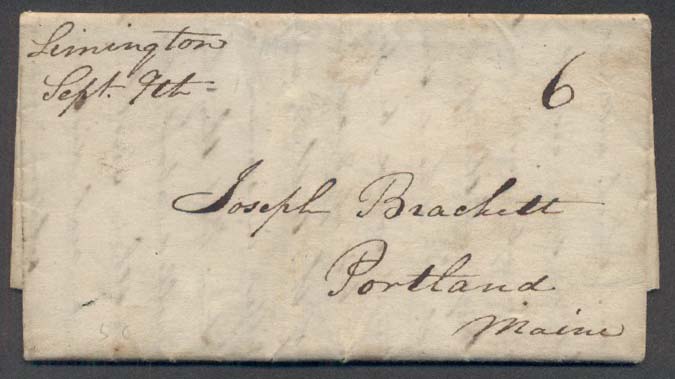 Limington
Sept. 9th
6
Joseph Brackett
Portland
Maine